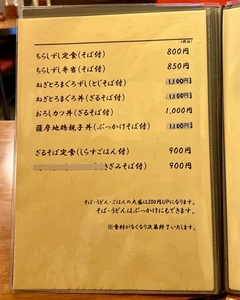 (税込)
ちらしずし定食(そば付) 800円
ちらしずし弁当(そば付) 850円
ねぎとろまぐろずし(とじそば付) 1,100円
ねぎとろまぐろ丼(ざるそば付) 1,100円
おろしカツ丼(ざるそば付) 1,000円
薩摩地鶏親子丼(ぶっかけそば付) 1,100円
ざるそば定食(しらすごはん付) 900円
きざみそば付) 900円
そば・うどん・ごはんの大盛は200円UPになります。
そば・うどんはぶっかけにもできます。
※食材がなくなり次第終了いたします。